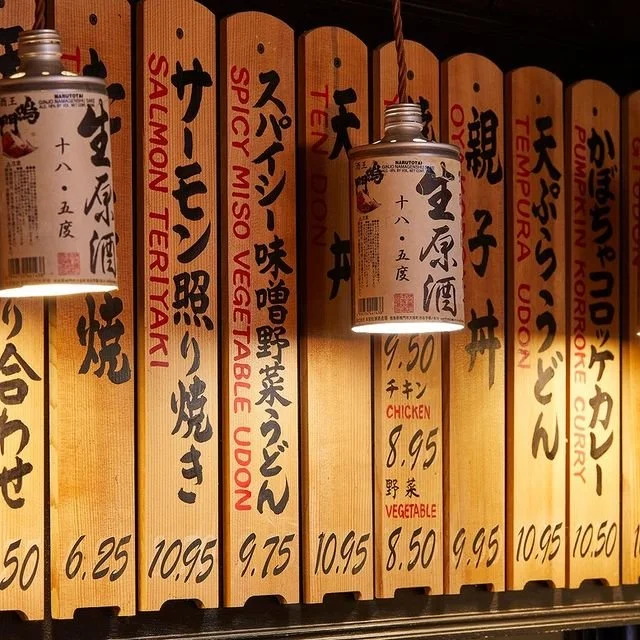 NARUTOTAI
GINJO NAMAGENSHU SAKE
生原酒
十八・五度
り合わせ
.50
焼
6.25
サーモン照り焼き
SALMON TERIYAKI
10.95
スパイシー味噌野菜うどん
SPICY MISO VEGETABLE UDON
9.75
天丼
TEN
10.95
NARUTOTAI
GINJO NAMAGENSHU SAKE
生原酒
十八・五度
9.50
チキン
CHICKEN
8.95
野菜
VEGETABLE
8.50
親子丼
OY
9.95
天ぷらうどん
TEMPURA UDON
10.95
かぼちゃコロッケカレー
PUMPKIN KORROKE CURRY
10.50